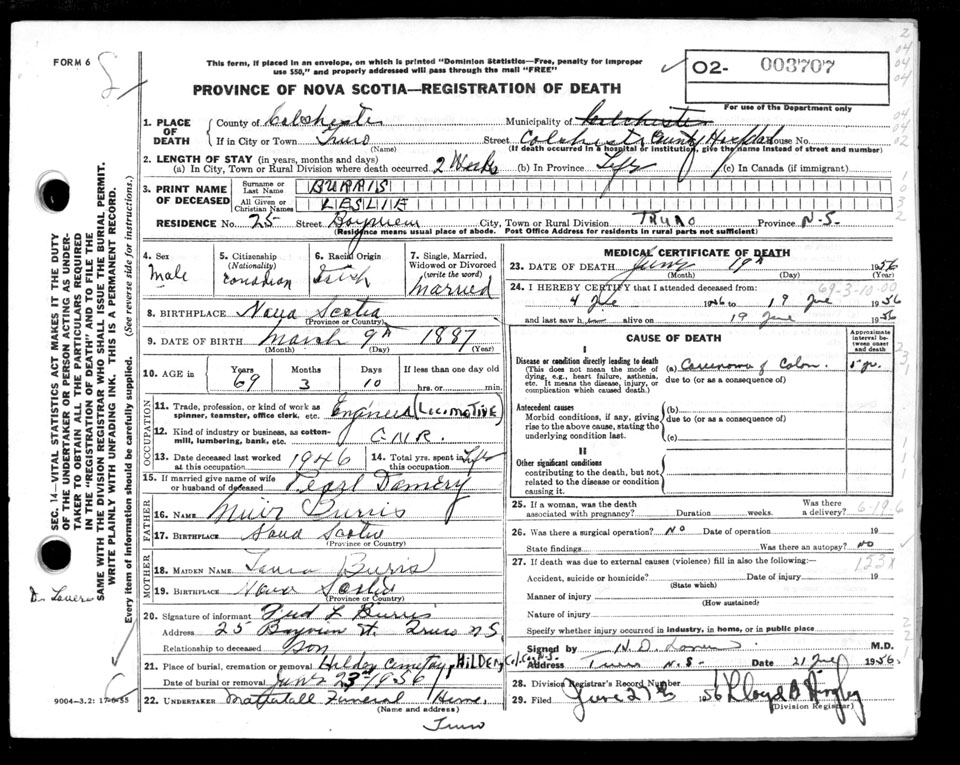 FORM 6
This form, if placed in an envelope, on which is printed "Dominion Statistics—Free, penalty for improper
use $50," and properly addressed will pass through the mail "FREE"
O2- 003707
For use of the Department only
PROVINCE OF NOVA SCOTIA—REGISTRATION OF DEATH
1. PLACE OF DEATH
County of Colchester Municipality of Colchester
If in City or Town Truro (Name) Street Colchester County Hospital House No.
(If death occurred in a hospital or institution, give the name instead of street and number)
2. LENGTH OF STAY (in years, months and days)
(a) In City, Town or Rural Division where death occurred 2 Weeks (b) In Province Life (c) In Canada (if immigrant)
3. PRINT NAME OF DECEASED
Surname or Last Name BURRIS
All Given or Christian Names LESLIE
RESIDENCE No. 25 Street Bayview City, Town or Rural Division TRURO Province N-S-
(Residence means usual place of abode. Post Office Address for residents in rural parts not sufficient)
4. Sex Male
5. Citizenship (Nationality) Canadian
6. Racial Origin
7. Single, Married, Widowed or Divorced (write the word) Married
8. BIRTHPLACE Nova Scotia
(Province or Country)
9. DATE OF BIRTH March 9th 1887
(Month) (Day) (Year)
10. AGE in Years 69 Months 3 Days 10 If less than one day old
hrs. or min.
OCCUPATION
11. Trade, profession, or kind of work as spinner, teamster, office clerk, etc. Engineer (LOCOMOTIVE)
12. Kind of industry or business, as cotton-mill, lumbering, bank, etc. C.N.R.
13. Date deceased last worked at this occupation 1946 14. Total yrs. spent in this occupation Life
15. If married give name of wife or husband of deceased Pearl Damery
FATHER
16. NAME Muir Burris
17. BIRTHPLACE Nova Scotia
(Province or Country)
MOTHER
18. MAIDEN NAME Burris
19. BIRTHPLACE Nova Scotia
(Province or Country)
20. Signature of informant Burris
Address 25 Bayview St. Truro N.S.
Relationship to deceased Son
21. Place of burial, cremation or removal Hilden Cemetery, HILDEN, Col. Co. N.S.
Date of burial or removal June 23rd 1956
22. UNDERTAKER Mattatall Funeral Home,
(Name and address)
Truro
9004-3.2: 17-6-55
MEDICAL CERTIFICATE OF DEATH
23. DATE OF DEATH June 19th 1956
(Month) (Day) (Year)
24. I HEREBY CERTIFY that I attended deceased from:
69-3-10-00
4 June 1956 to 19 June 1956
and last saw him alive on 19 June 1956
CAUSE OF DEATH
Approximate interval between onset and death
I
Disease or condition directly leading to death
(This does not mean the mode of dying, e.g., heart failure, asthenia, etc. It means the disease, injury, or complication which caused death.)
(a) Carcinoma of Colon. 5 yr.
due to (or as a consequence of)
Antecedent causes
Morbid conditions, if any, giving rise to the above cause, stating the underlying condition last.
(b)
due to (or as a consequence of)
(c)
II
Other significant conditions
contributing to the death, but not related to the disease or condition causing it.
25. If a woman, was the death associated with pregnancy? Duration weeks. Was there a delivery?
6-19-6
26. Was there a surgical operation? No Date of operation 19
State findings Was there an autopsy? No
27. If death was due to external causes (violence) fill in also the following:—
153X
Accident, suicide or homicide? Date of injury 19
(State which)
Manner of injury
(How sustained)
Nature of injury
Specify whether injury occurred in industry, in home, or in public place
Signed by N. D. M.D.
Address Truro N.S. Date 21 June 1956
28. Division Registrar's Record Number
29. Filed June 27th 1956 Lloyd
(Division Registrar)
SEC. 14—VITAL STATISTICS ACT MAKES IT THE DUTY
OF THE UNDERTAKER OR PERSON ACTING AS UNDER-
TAKER TO OBTAIN ALL THE PARTICULARS REQUIRED
IN THE "REGISTRATION OF DEATH" AND TO FILE THE
SAME WITH THE DIVISION REGISTRAR WHO SHALL ISSUE THE BURIAL PERMIT.
WRITE PLAINLY WITH UNFADING INK. THIS IS A PERMANENT RECORD.
Every item of information should be carefully supplied. (See reverse side for instructions.)